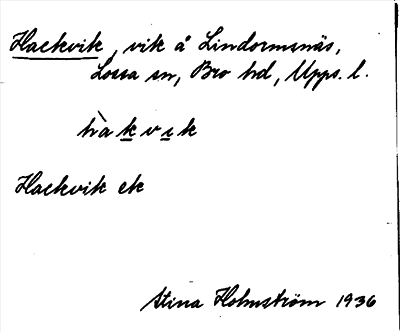 Hackvik, vik å Lindormsnäs,
Lossa sn, Bro hd, Upps. l.
hàkvik
Hackvik ek
Stina Holmström 1936